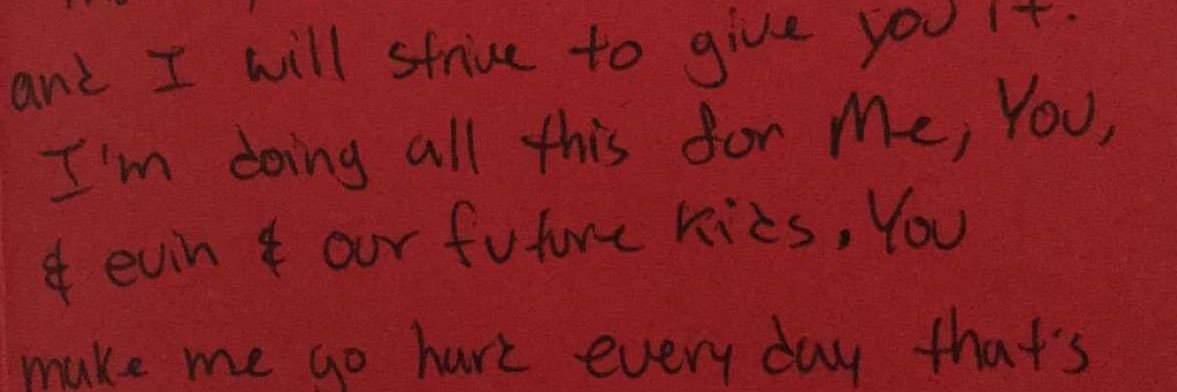 and I will strive to give you it.
I'm doing all this for Me, You,
& evin & our future kids. You
make me go hard every day that's